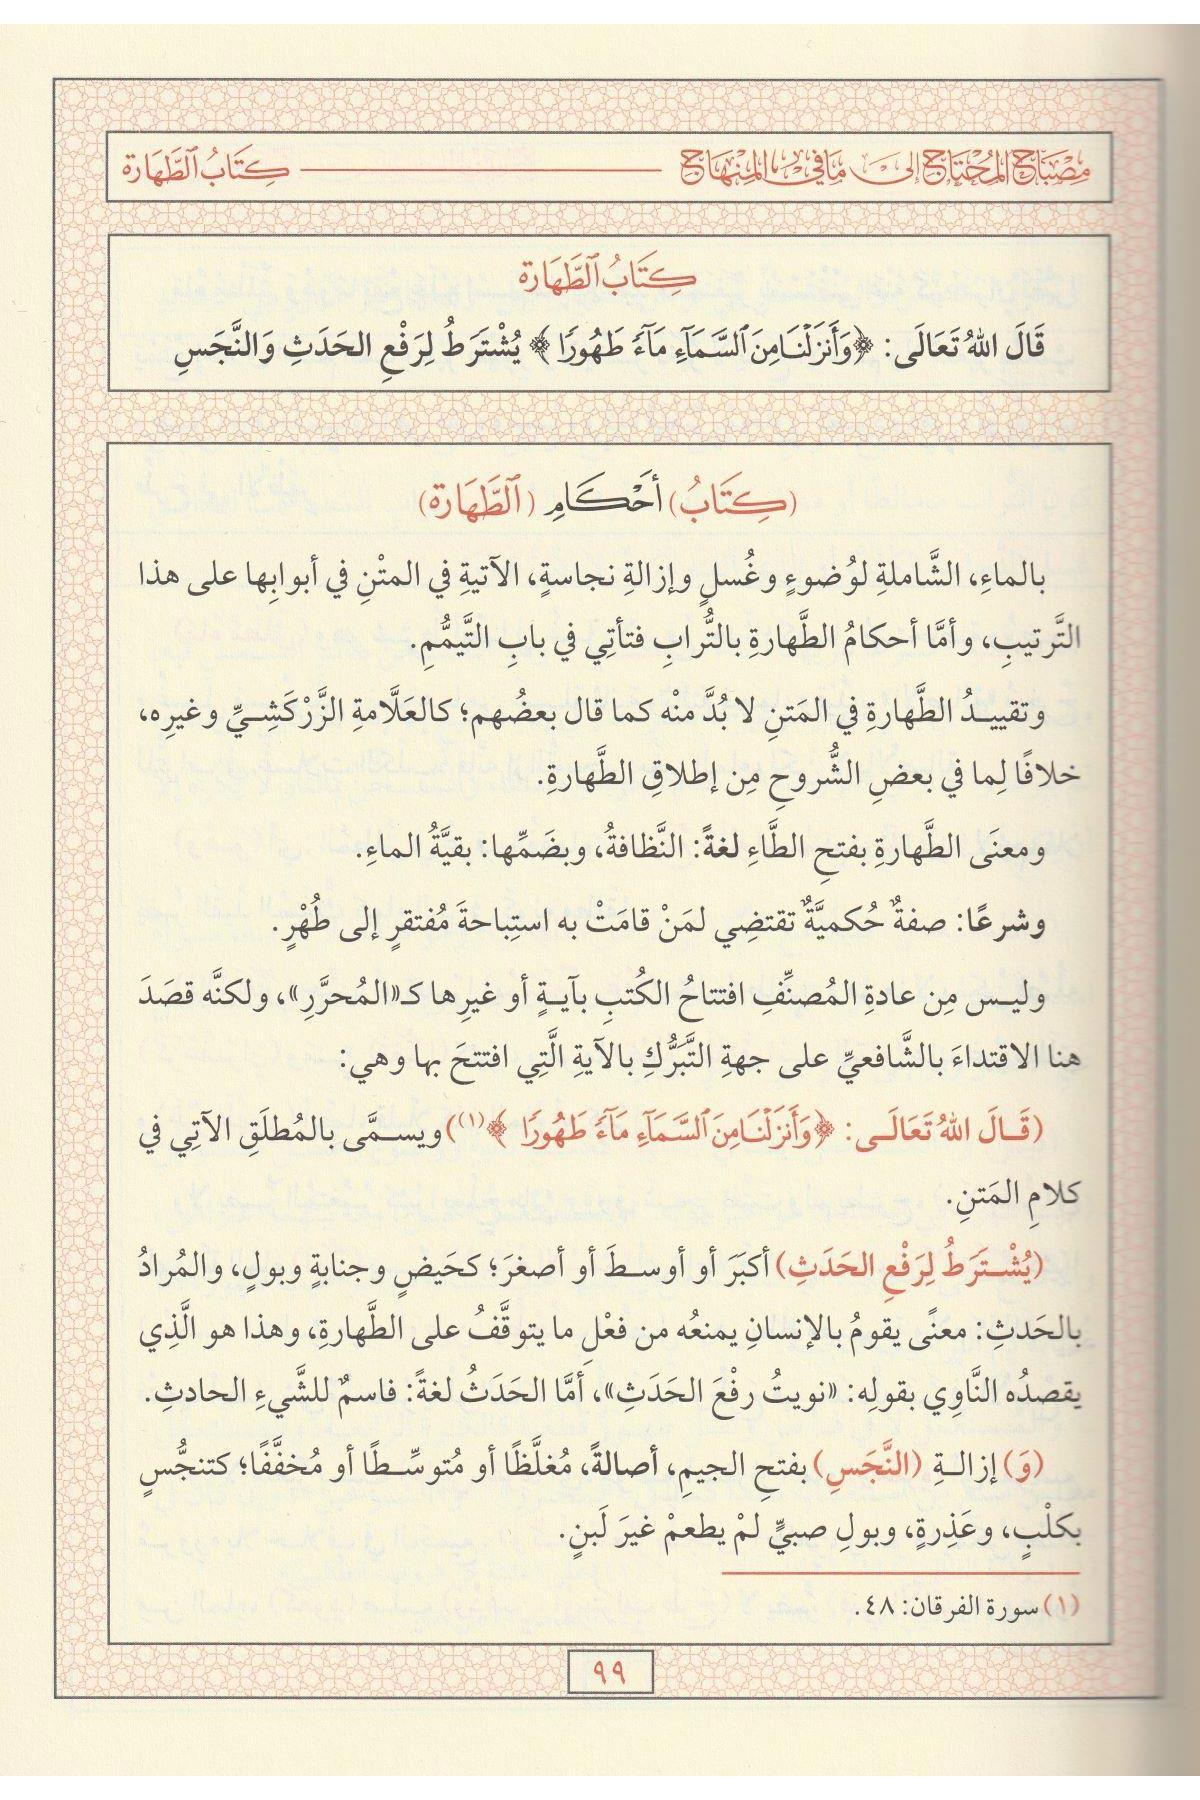 مِصْبَاحُ المُحْتَاجِ إِلَى مَا فِي المِنْهَاجِ كِتَابُ ٱلطَّهَارَة
كِتَابُ ٱلطَّهَارَة
قَالَ اللهُ تَعَالَى: ﴿وَأَنزَلْنَا مِنَ ٱلسَّمَآءِ مَآءً طَهُورًا﴾ يُشْتَرَطُ لِرَفْعِ الحَدَثِ وَالنَّجَسِ
(كِتَابُ) أَحْكَامِ (ٱلطَّهَارَة)
بالماءِ، الشَّاملةِ لوُضوءٍ وغُسلٍ وإزالةِ نجاسةٍ، الآتيةِ في المتْنِ في أبوابِها على هذا
التَّرتيبِ، وأمَّا أحكامُ الطَّهارةِ بالتُّرابِ فتأتِي في بابِ التَّيمُّمِ.
وتقييدُ الطَّهارةِ في المَتنِ لا بُدَّ منْه كما قال بعضُهم؛ كالعَلَّامةِ الزَّرْكَشِيِّ وغيرِه،
خلافًا لِما في بعضِ الشُّروحِ مِن إطلاقِ الطَّهارةِ.
ومعنَى الطَّهارةِ بفتحِ الطَّاءِ لغةً: النَّظافةُ، وبضَمِّها: بقيَّةُ الماءِ.
وشرعًا: صفةٌ حُكميَّةٌ تقتضِي لمَنْ قامَتْ به استِباحةَ مُفتقرٍ إلى طُهْرٍ.
وليس مِن عادةِ المُصنِّفِ افتتاحُ الكُتبِ بآيةٍ أو غيرِها كـ«المُحرَّرِ»، ولكنَّه قصَدَ
هنا الاقتداءَ بالشَّافعيِّ على جهةِ التَّبَرُّكِ بالآيةِ الَّتِي افتتحَ بها وهي:
(قَالَ اللهُ تَعَالَى: ﴿وَأَنزَلْنَا مِنَ ٱلسَّمَآءِ مَآءً طَهُورًا﴾(١)) ويسمَّى بالمُطلَقِ الآتِي في
كلامِ المَتنِ.
(يُشْتَرَطُ لِرَفْعِ الحَدَثِ) أكبَرَ أو أوسطَ أو أصغرَ؛ كحَيضٍ وجنابةٍ وبولٍ، والمُرادُ
بالحَدثِ: معنًى يقومُ بالإنسانِ يمنعُه من فعْلِ ما يتوقَّفُ على الطَّهارةِ، وهذا هو الَّذِي
يقصدُه النَّاوِي بقولِه: «نويتُ رفْعَ الحَدَثِ»، أمَّا الحَدَثُ لغةً: فاسمٌ للشَّيءِ الحادثِ.
(وَ) إزالةِ (النَّجَسِ) بفتحِ الجيمِ، أصالةً، مُغلَّظًا أو مُتوسِّطًا أو مُخفَّفًا؛ كتنجُّسٍ
بكلْبٍ، وعَذِرةٍ، وبولِ صبيٍّ لمْ يطعمْ غيرَ لَبنٍ.
(١) سورة الفرقان: ٤٨.
٩٩